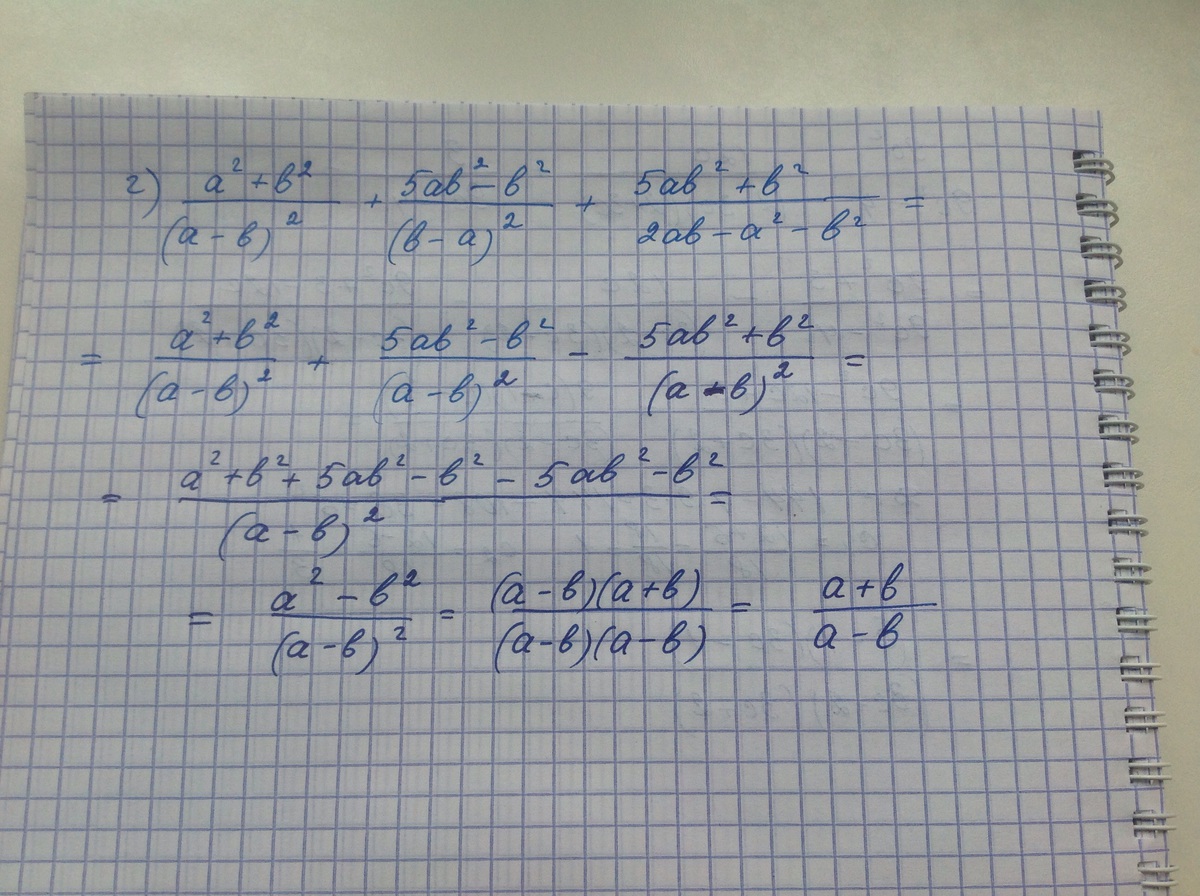 г) (a² + b²)/(a - b)² + (5ab² - b²)/(b - a)² + (5ab² + b²)/(2ab - a² - b²) =
= (a² + b²)/(a - b)² + (5ab² - b²)/(a - b)² - (5ab² + b²)/(a - b)² =
= (a² + b² + 5ab² - b² - 5ab² - b²)/(a - b)² =
= (a² - b²)/(a - b)² = ((a - b)(a + b))/((a - b)(a - b)) = (a + b)/(a - b)